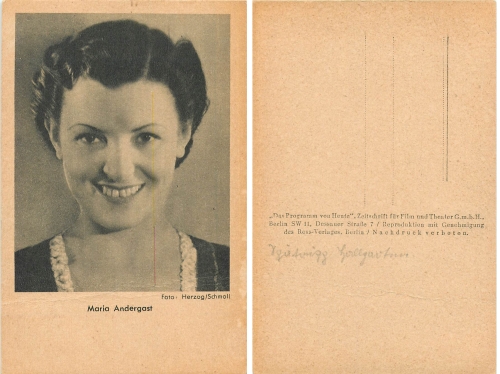 Foto: Herzog/Schmoll
Maria Andergast
„Das Programm von Heute“, Zeitschrift für Film und Theater G.m.b.H.,
Berlin SW 11, Dessauer Straße 7 / Reproduktion mit Genehmigung
des Ross-Verlages, Berlin / Nachdruck verboten.